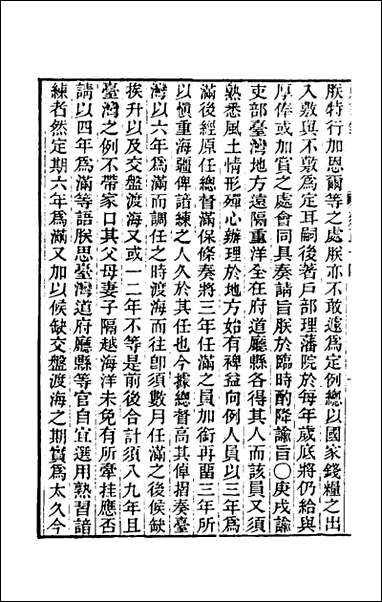 朕特行加恩爾等之處朕亦不敢遽爲定例總以國家錢糧之出
入敷與不敷爲定耳嗣後著戸部理藩院於每年歲底將仍給與
厚俸或加賞之處會同具奏請旨朕於臨時酌降諭旨〇庚戌諭
吏部臺灣地方遠隔重洋全在府道廳縣各得其人而該員又須
熟悉風土情形殫心辦理於地方始有裨益向例人員以三年爲
滿後經原任總督高其倬條奏將三年任滿之員加銜再畱三年所
以愼重海疆俾諳練之人久於其任也今據總督高其倬摺奏臺
灣以六年爲滿而調任之時渡海而往卽須數月任滿之後候缺
挨升以及交盤渡海又或一二年不等是前後合計須八九年且
臺灣之例不帶家口其父母妻子隔越海洋未免有所牽挂應否
請以四年爲滿等語朕思臺灣道府廳縣等官自宜選用熟習諳
練者然定期六年爲滿又加以候缺交盤渡海之期實爲太久今